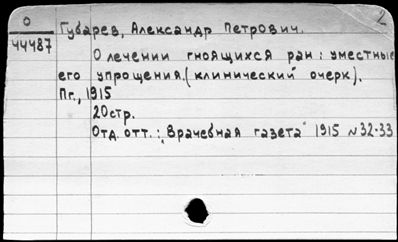 0
44487
Губарев, Александр Петрович.
О лечении гноящихся ран: уместные
его упрощения. (клинический очерк).
Пг., 1915
20стр.
Отд. отт.: "Врачебная газета" 1915 №32-33